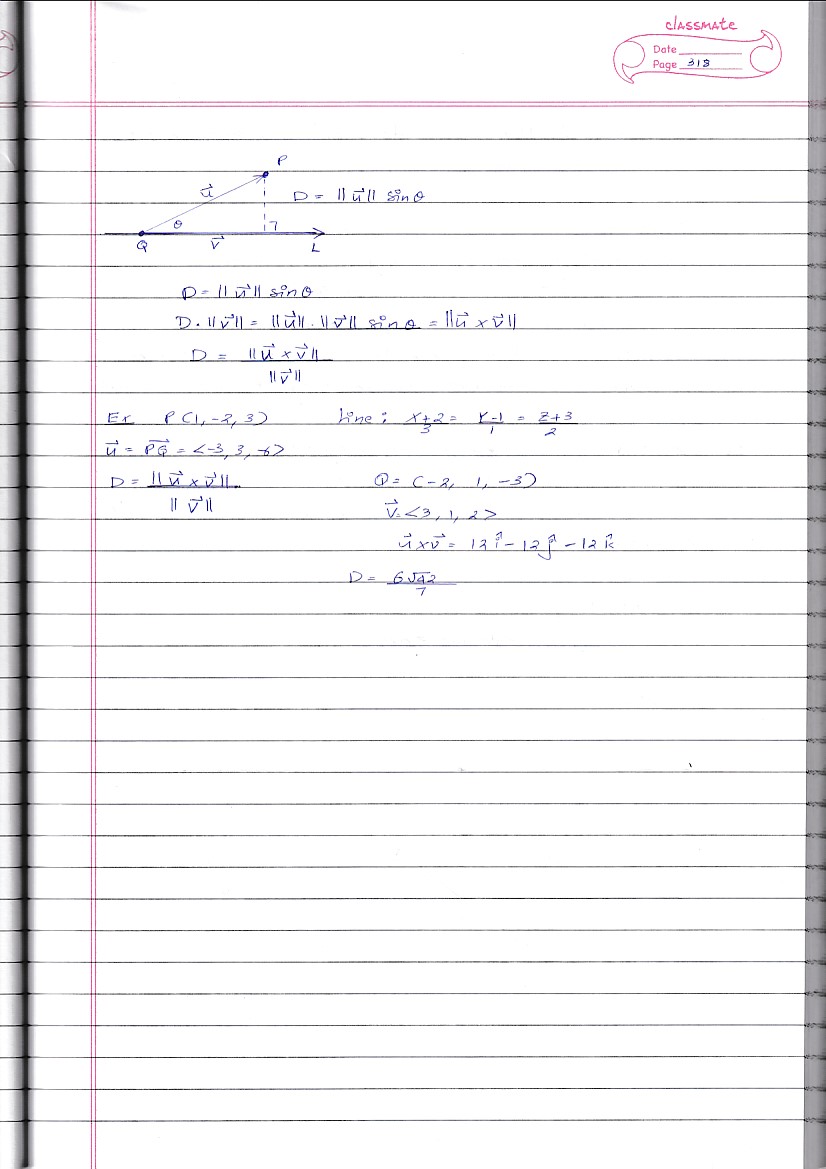 classmate
Date
Page 318
P
u⃗
D = ||u⃗|| sinθ
θ
Q
v⃗
L
D = ||u⃗|| sinθ
D. ||v⃗|| = ||u⃗|| . ||v⃗|| sinθ = ||u⃗ × v⃗||
D = ||u⃗ × v⃗|| / ||v⃗||
Ex P(1, -2, 3) Line: (x+2)/3 = (y-1)/1 = (z+3)/2
u⃗ = PQ⃗ = <-3, 3, -6>
D = ||u⃗ × v⃗|| / ||v⃗||
Q = (-2, 1, -3)
v⃗ = <3, 1, 2>
u⃗×v⃗ = 12î - 12ĵ - 12k̂
D = 6√42 / 7